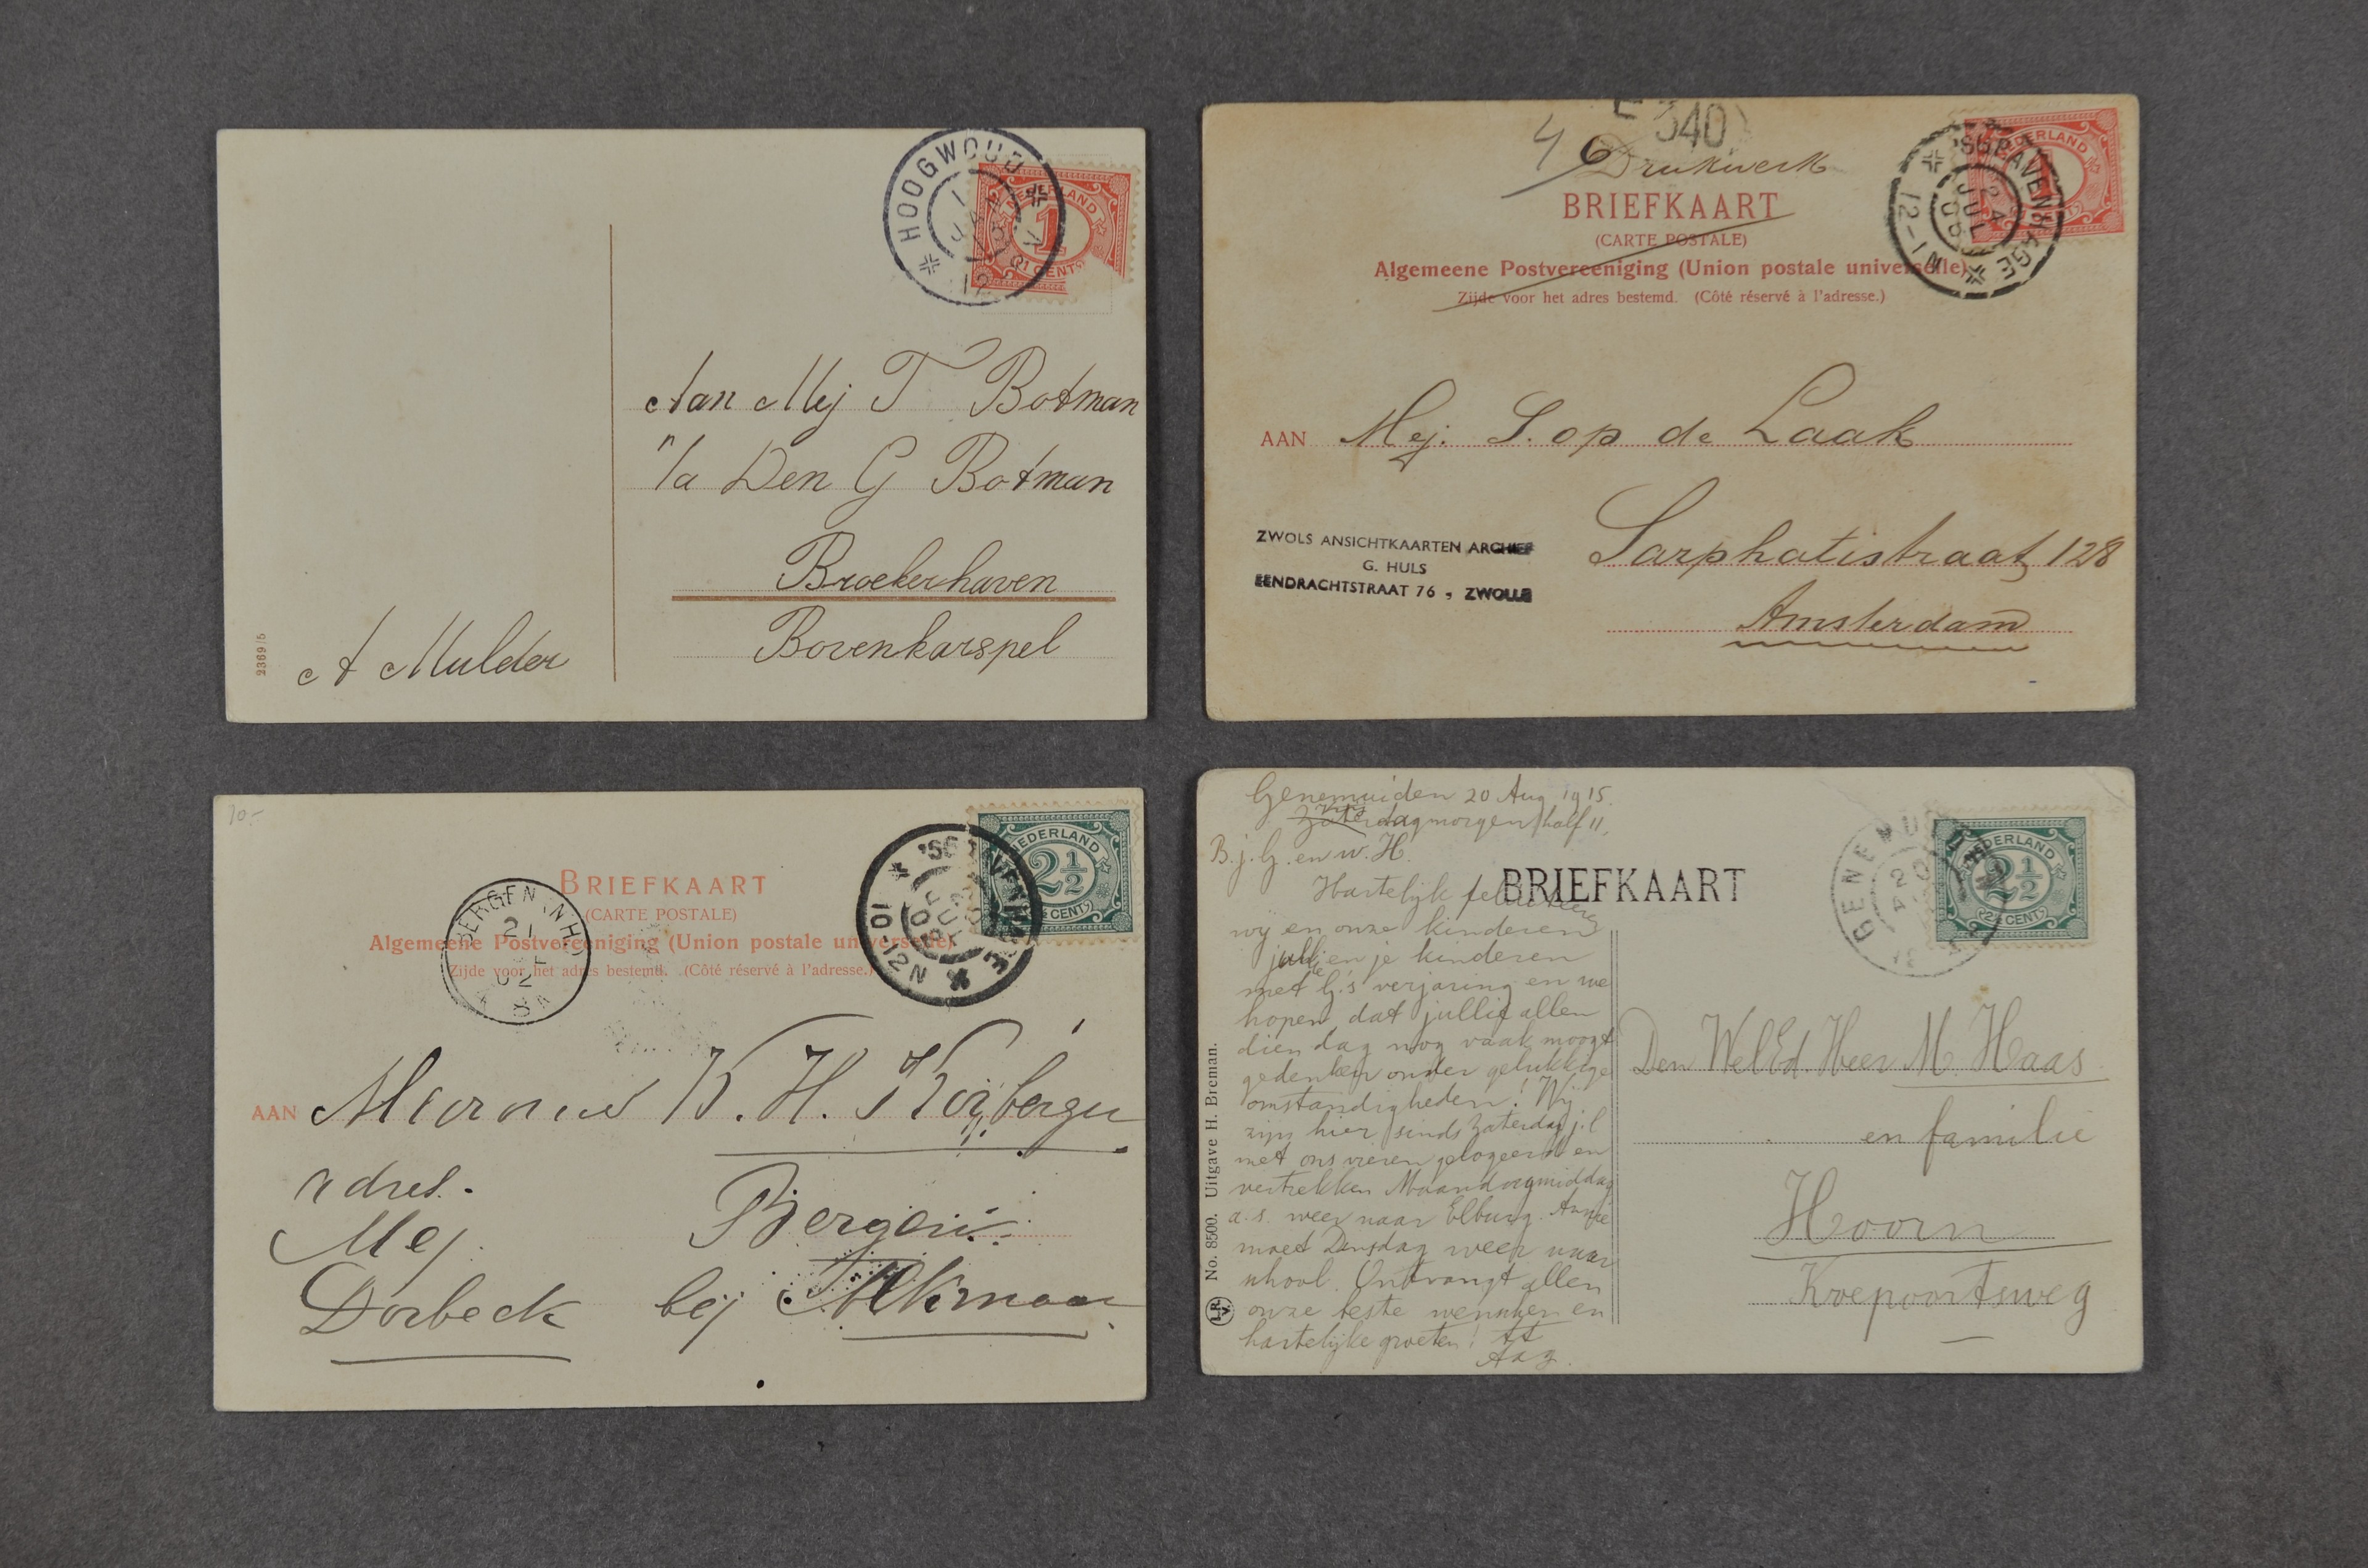 HOOGWOUD
1 JAN
12
NEDERLAND
1
1 CENT
Aan Mej T Botman
"/a Den G Botman
Broekerhaven
Bovenkarspel
A Mulder
2369/5
340
46
Drukwerk
BRIEFKAART
(CARTE POSTALE)
Algemeene Postvereeniging (Union postale universelle)
Zijde voor het adres bestemd. (Côté réservé à l'adresse.)
NEDERLAND
1
'SGRAVENHAGE
JUL
12-1N
AAN Mej. S. op de Laak
Sarphatistraat 128
Amsterdam
ZWOLS ANSICHTKAARTEN ARCHIEF
G. HULS
EENDRACHTSTRAAT 76, ZWOLLE
10.-
BRIEFKAART
(CARTE POSTALE)
Algemeene Postvereeniging (Union postale universelle)
Zijde voor het adres bestemd. (Côté réservé à l'adresse.)
BERGEN (N.H)
21
02
8V
'SGRAVENHAGE
10-12N
NEDERLAND
2½
2½ CENT
AAN Mevrouw K. H.
adres.
Mej.
Dorbeck
Bergen
bij Alkmaar
Genemuiden 20 Aug 1915.
Zaterdagmorgen half 11.
B. j. G. en w. H.
Hartelijk feliciteeren
wij en onze kinderen
jullie en je kinderen
met G.'s verjaring en we
hopen dat jullie allen
dien dag nog vaak moogt
gedenken onder gelukkige
omstandigheden! Wij
zijn hier sinds Zaterdag j.l
met ons vieren gelogeerd en
vertrekken Maandagmiddag
a.s. weer naar Elburg. Annie
moet Dinsdag weer naar
school. Ontvangt allen
onze beste wenschen en
hartelijke groeten! tt
BRIEFKAART
GENEMUIDEN
NEDERLAND
2½
2½ CENT
Den WelEd Heer M. Haas
en familie
Hoorn
Koepoortsweg
No. 8500. Uitgave H. Breman.